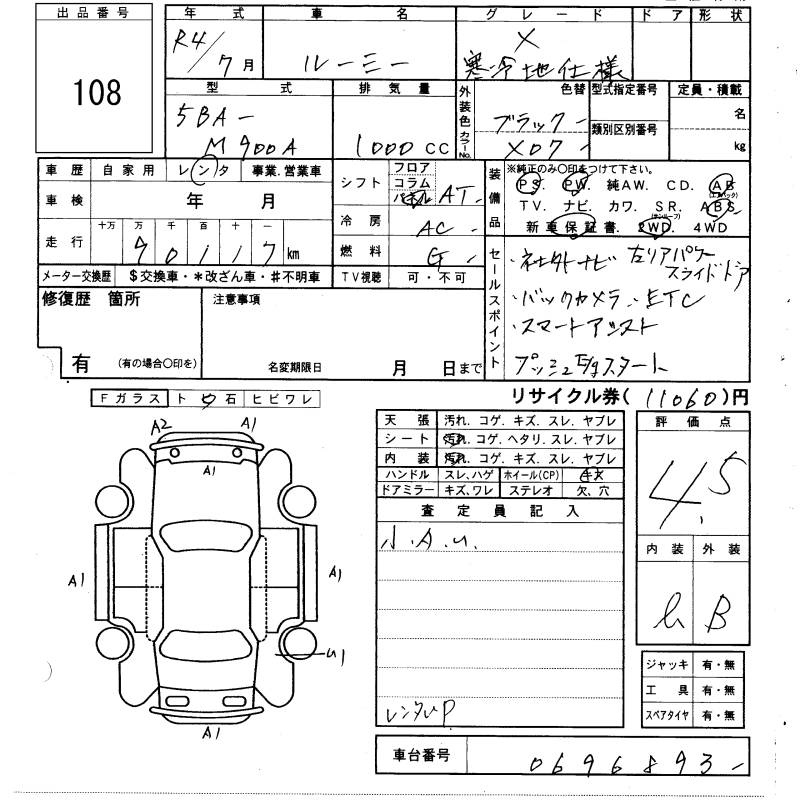 出品番号 年 式 車 名 グ レ ー ド ド ア 形 状
108 R4/7月 ルーミー X 寒冷地仕様
型 式 排 気 量 外装色 カラーNo. 色替 型式指定番号 定員・積載
5BA- M900A 1000CC ブラック- X07- 類別区別番号 名 kg
車 歴 自 家 用 レ ン タ 事業.営業車
車 検 年 月
走 行 十万 万 千 百 十 km
90117
メーター交換歴 $交換車・*改ざん車・#不明車
シフト フロア コラム パネル AT-
冷 房 AC-
燃 料
TV視聴 可・不可
装備品 ※純正のみ○印をつけて下さい。
PS. PW. 純AW. CD. AB(エアバック)
TV. ナビ. カワ. SR.(サンルーフ) ABS.
新車保証書. 2WD. 4WD
修復歴 箇所
有 (有の場合○印を)
注意事項
名変期限日 月 日まで
セールスポイント
・社外ナビ 左リアパワースライドドア
・バックカメラ・ETC
・スマートアシスト
プッシュEgスタート
リサイクル券(11060)円
Fガラス ト ビ 石 ヒビワレ
A2 A1
A1
A1 A1
U1
A1
天 張 汚れ. コゲ. キズ. スレ. ヤブレ
シート 汚れ. コゲ. ヘタリ. スレ. ヤブレ
内 装 汚れ. コゲ. キズ. スレ. ヤブレ
ハンドル スレ、ハゲ ホイール(CP) キズ
ドアミラー キズ、ワレ ステレオ 欠、穴
査 定 員 記 入
小.A.U.
レンタUP
評 価 点
4.5
内 装 外 装
B
ジャッキ 有・無
工 具 有・無
スペアタイヤ 有・無
車台番号 0696893-